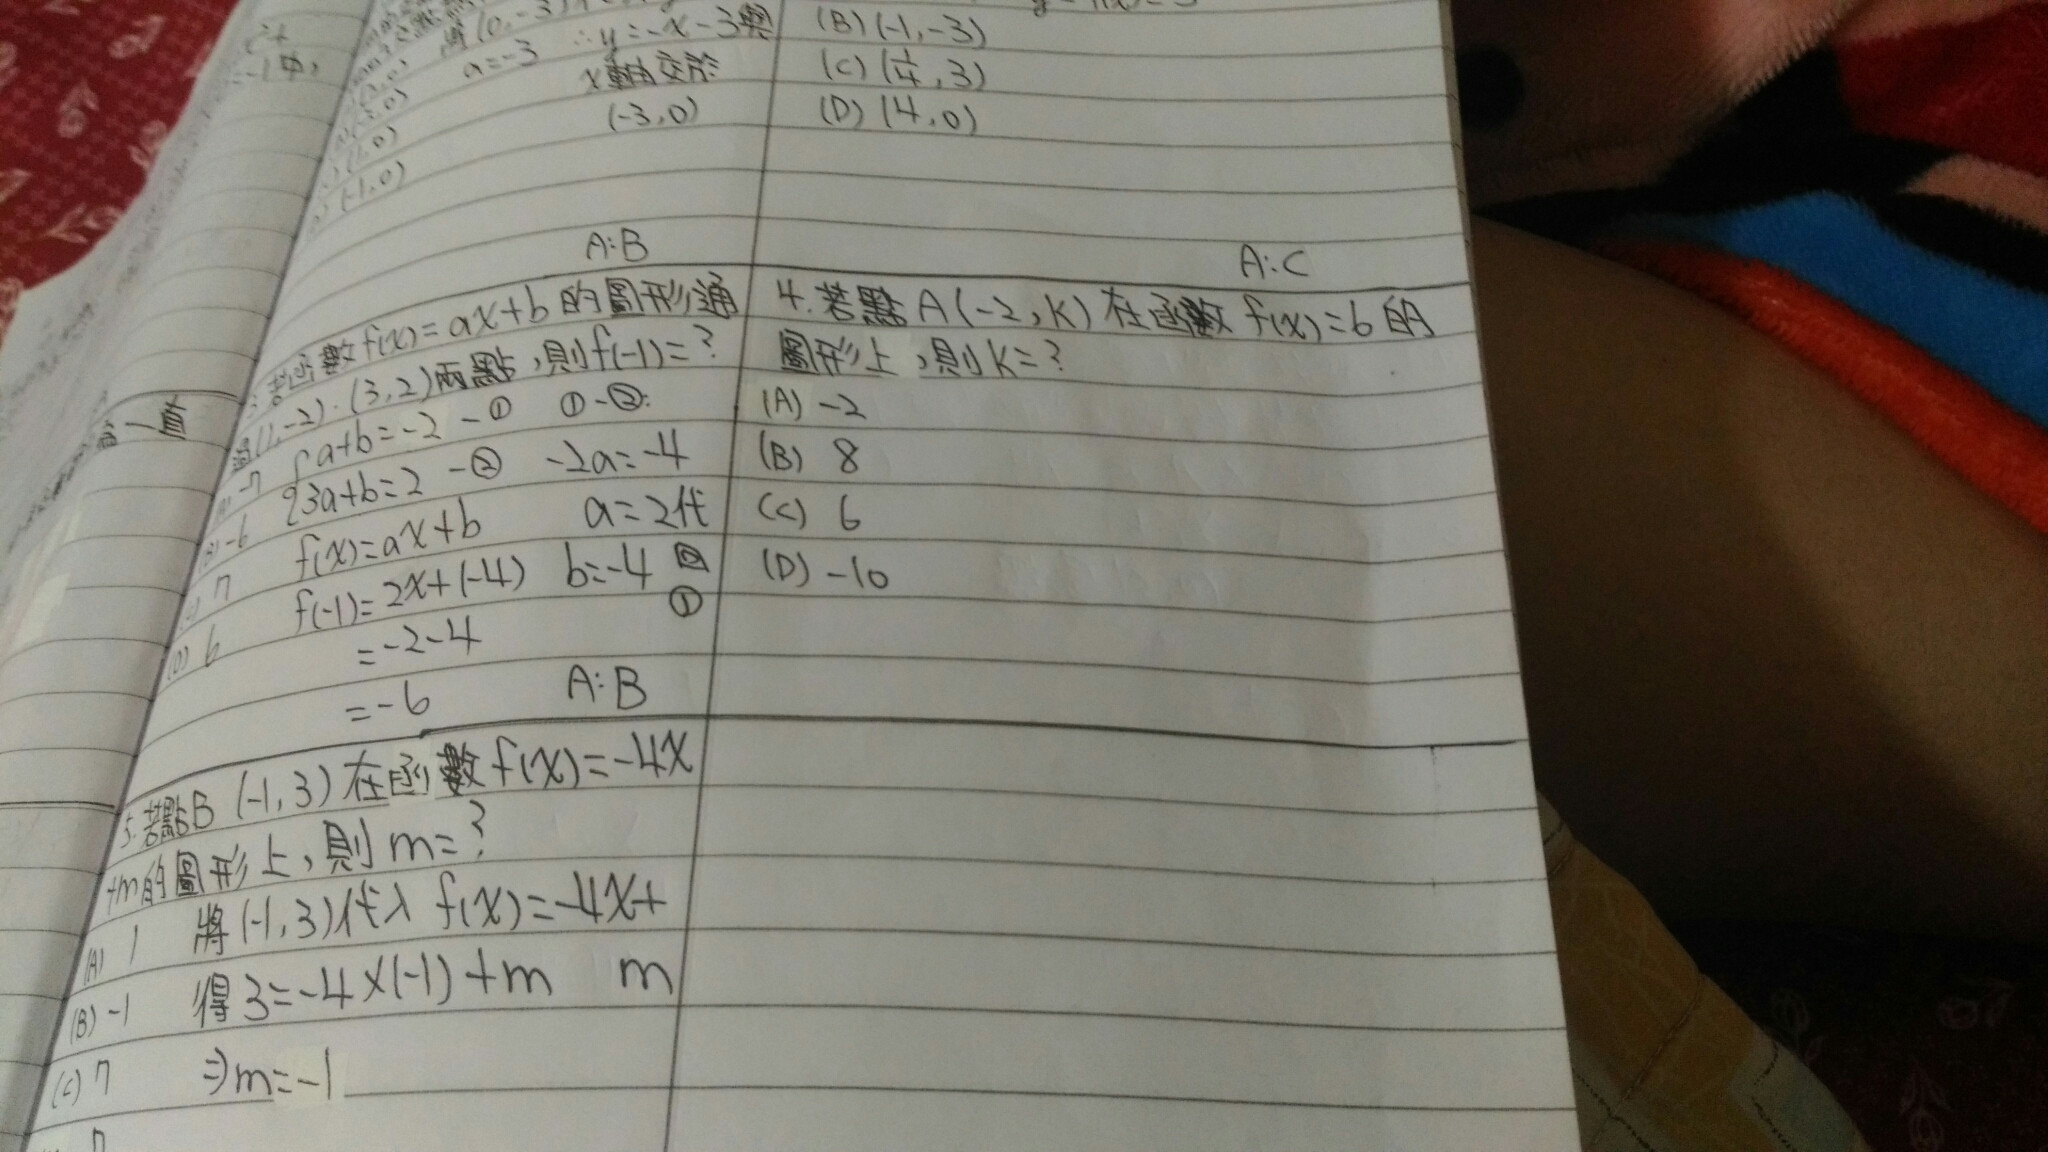 (0,-3)
a=-3 ∴y=-x-3與
x軸交於
(-3,0)
(1,0)
(-1,0)
A:B
(B) (-1,-3)
(C) (1/4,3)
(D) (4,0)
A:C
3.若函數f(x)=ax+b的圖形通
過(1,-2)、(3,2)兩點,則f(-1)=?
(A) -7 { a+b=-2 -① ①-②:
(B) -6 3a+b=2 -② -2a=-4
(C) 7 f(x)=ax+b a=2代
(D) 6 f(-1)=2x+(-4) b=-4
①
=-2-4
=-6 A:B
4.若點A(-2,k)在函數f(x)=6的
圖形上,則k=?
(A) -2
(B) 8
(C) 6
(D) -10
5.若點B (-1,3)在函數f(x)=-4x
+m的圖形上,則m=?
(A) 1 將(-1,3)代入f(x)=-4x+
m
(B) -1 得3=-4×(-1)+m
(C) 7 ⇒m=-1
含一直